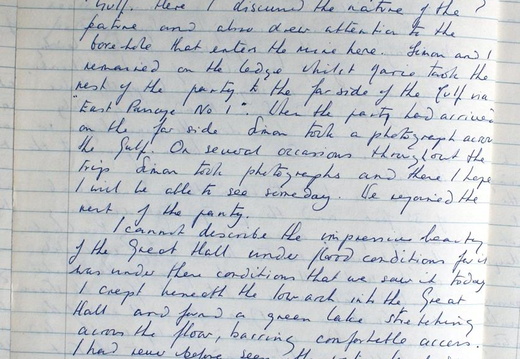 Gulf. Here I discussed the nature of the ?
patine and also drew attention to the
bore-hole that enters the mine here. Simon and I
remained on the ledge whilst took the
rest of the party to the far side of the Gulf via
"East Passage No 1". When the party had arrived
on the far side Simon took a photograph across
the Gulf. On several occasions throughout the
trip Simon took photographs and these I hope
I will be able to see someday. We rejoined the
rest of the party.
I cannot describe the impressive beauty
of the Great Hall under flood conditions for it
was under these conditions that we saw it today
I crept beneath the low arch into the Great
Hall and found a green lake stretching
across the floor, barring comfortable access.
I had never before seen the